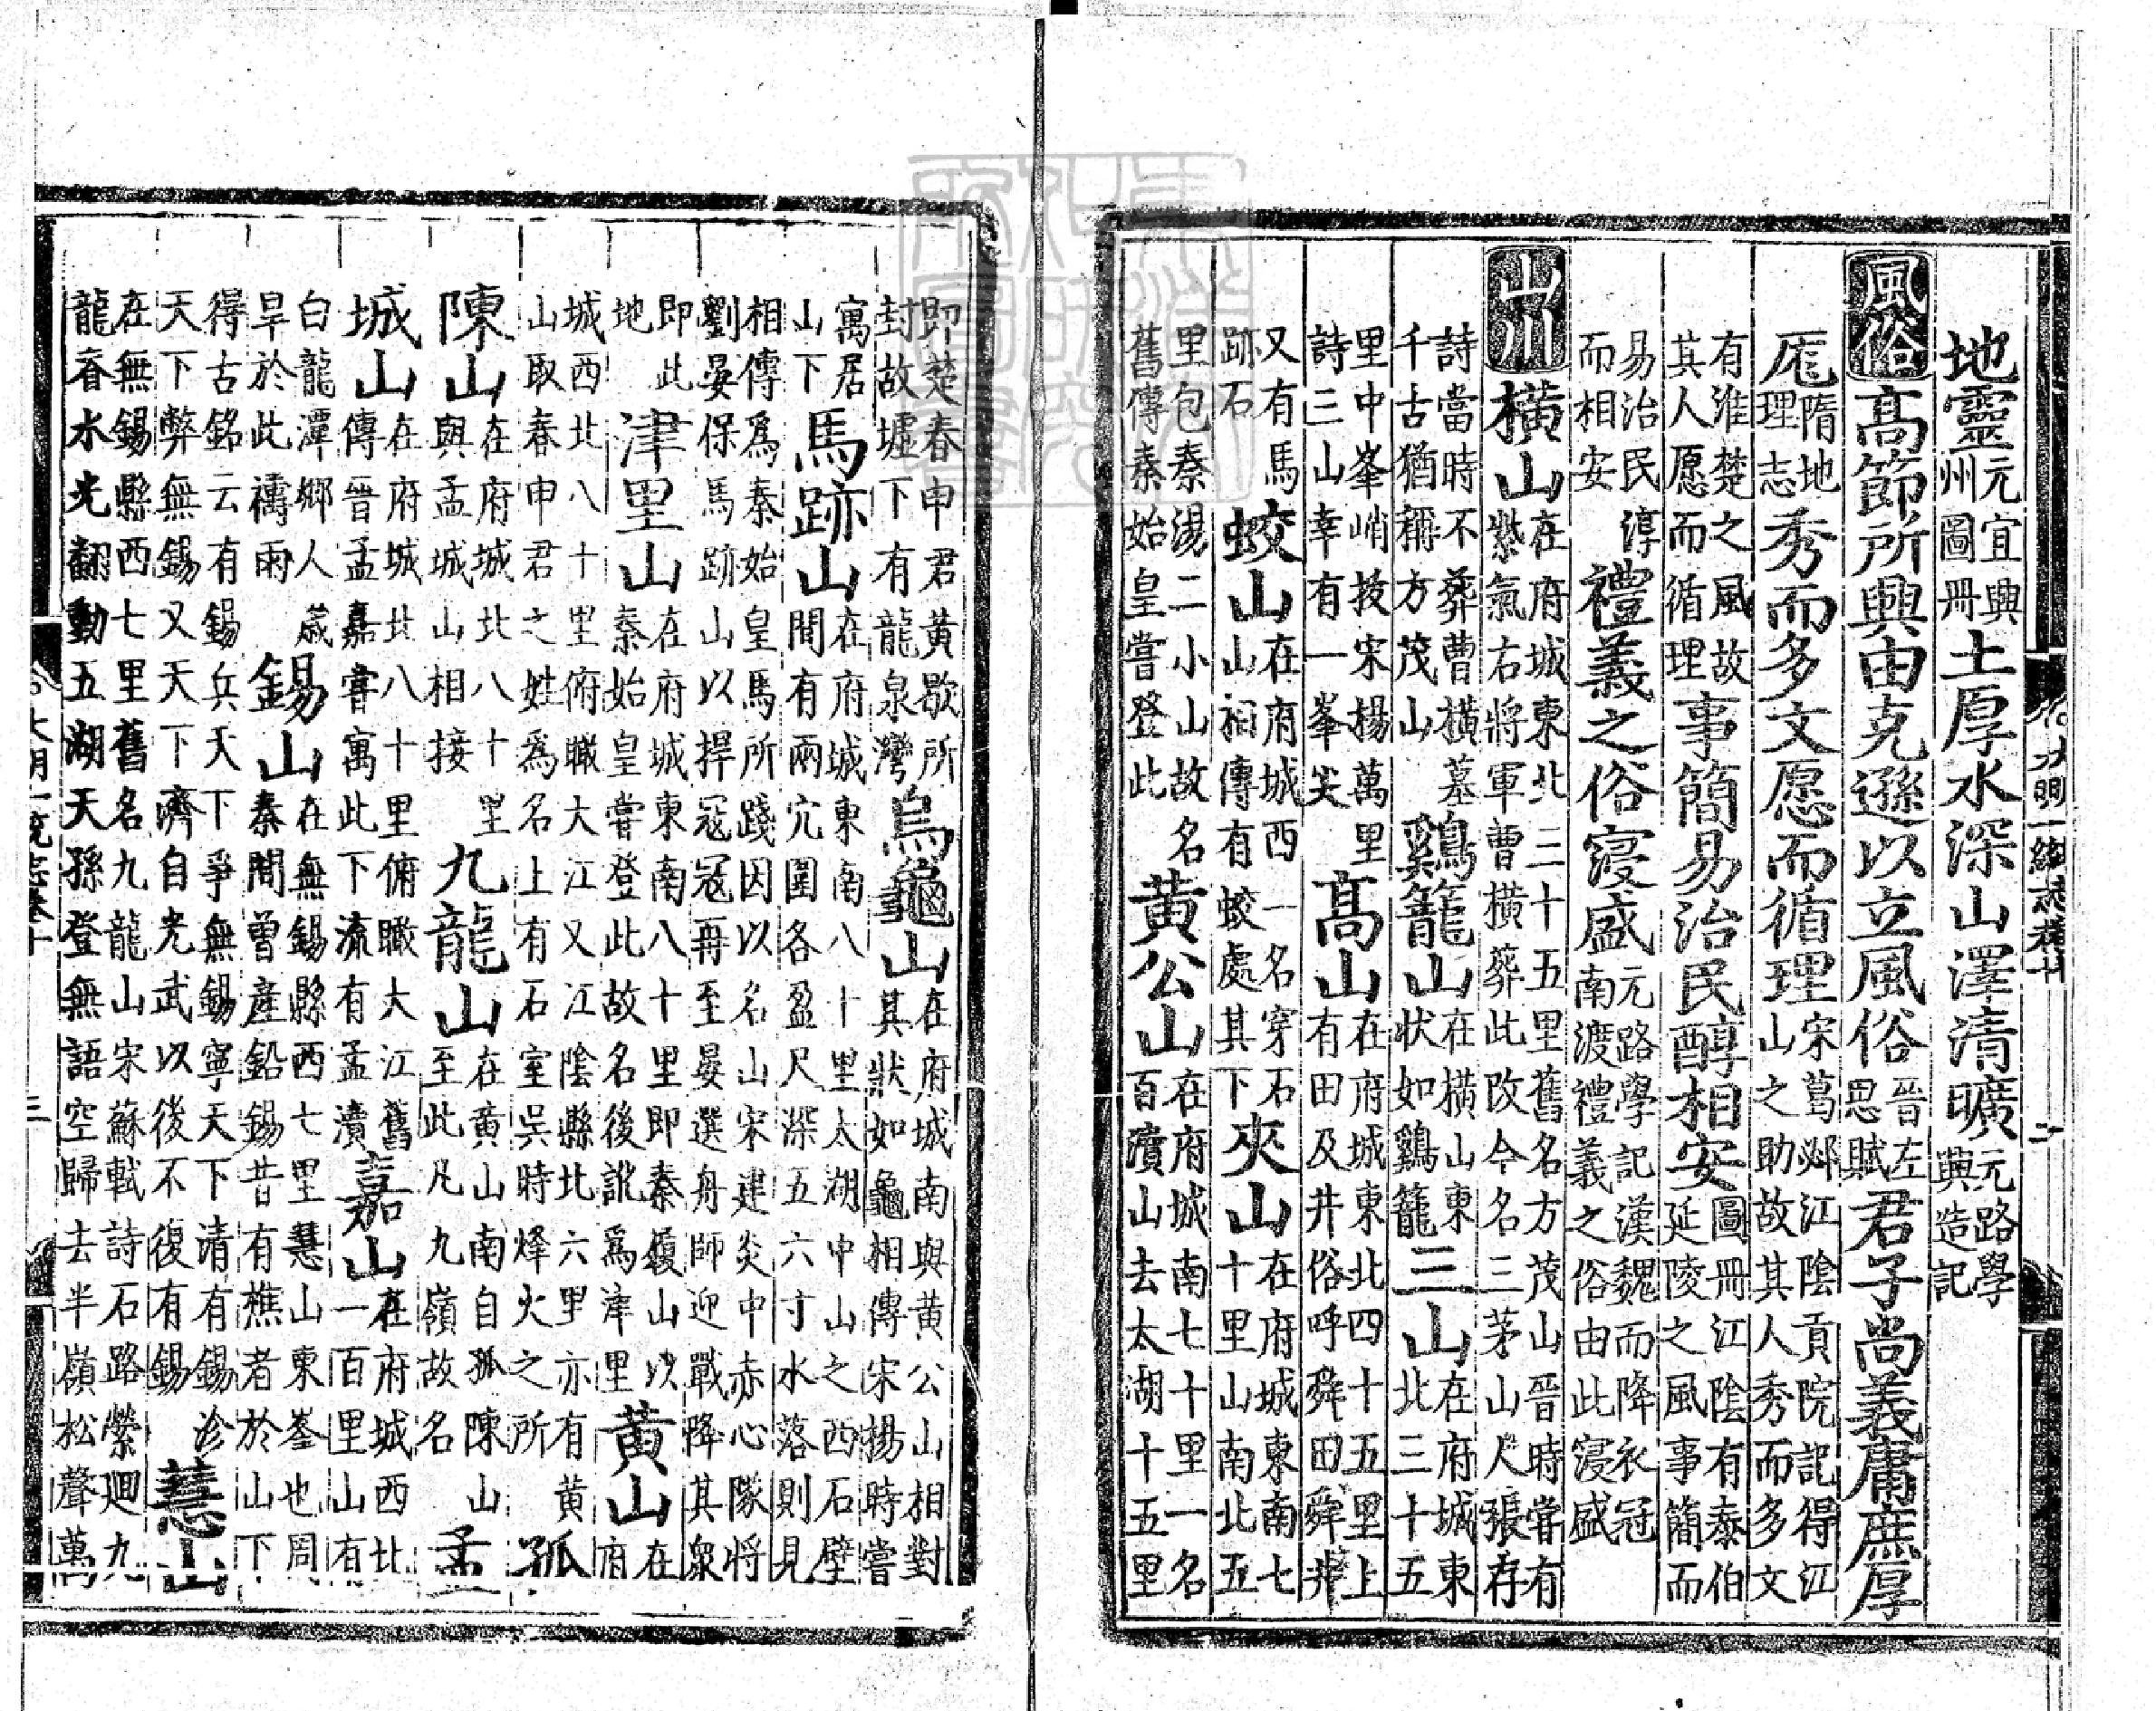 大明一統志卷十 二
地靈元宜興州圖冊土厚水深山澤清曠元路學興造記
風俗高節所興由克遜以立風俗晉左思賦君子尚義庸庶厚
厖隋地理志秀而多文愿而循理宋葛邲江陰貢院記得江山之助故其人秀而多文
有淮楚之風故其人愿而循理事簡易治民醇相安圖冊江陰有泰伯延陵之風事簡而
易治民淳而相安禮義之俗寖盛元路學記漢魏而降衣冠南渡禮義之俗由此寖盛
山川橫山在府城東北三十五里舊名方茂山晉時嘗有紫氣右將軍曹橫葬此改今名三茅山人張存
詩當時不葬曹橫墓千古猶稱方茂山雞籠山在橫山東狀如雞籠三山在府城東北三十五
里中峯峭拔宋楊萬里詩三山幸有一峯尖高山在府城東北四十五里上有田及井俗呼舜田舜井
又有馬跡石蛟山在府城西一名穿石山相傳有蛟處其下夾山在府城東南七十里山南北五
里包秦湯二小山故名舊傳秦始皇嘗登此黃公山在府城南七十里一名百瀆山去太湖十五里
即楚春申君黃歇所封故墟下有龍泉灣烏龜山在府城南與黃公山相對其狀如龜相傳宋楊時嘗
寓居山下馬跡山在府城東南八十里太湖中山之西石壁間有兩穴圍各盈尺深五六寸水落則見
相傳爲秦始皇馬所踐因以名山宋建炎中赤心隊將劉晏保馬跡山以捍冦冦再至晏選舟師迎戰降其眾
即此地津里山在府城東南八十里即秦履山以秦始皇嘗登此故名後訛爲津里黃山在府
城西北八十里俯瞰大江又江陰縣北六里亦有黃山取春申君之姓爲名上有石室吳時烽火之所孤
陳山在府城北八十里與孟城山相接九龍山在黃山南自孤陳山至此凡九嶺故名孟
城山在府城北八十里俯瞰大江舊傳晉孟嘉嘗寓此下流有孟瀆嘉山在府城西北一百里山有
白龍潭鄉人歲旱於此禱雨錫山在無錫縣西七里慧山東峯也周秦間曾產鉛錫昔有樵者於山下
得古銘云有錫兵天下爭無錫寧天下清有錫沴天下弊無錫乂天下濟自光武以後不復有錫慧山
在無錫縣西七里舊名九龍山宋蘇軾詩石路縈廻九龍脊水光翻動五湖天孫登無語空歸去半嶺松聲萬
大明一統志卷十 三